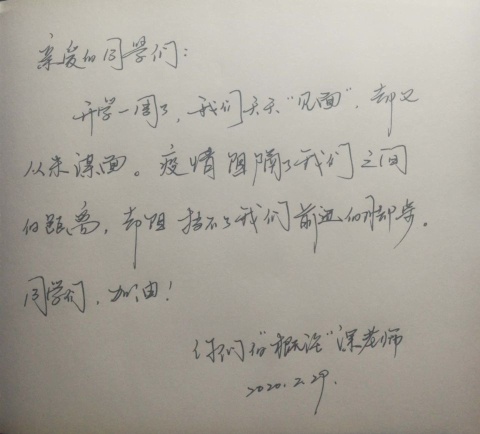 亲爱的同学们：
开学一周了，我们天天“见面”，却又
从未谋面。疫情阻隔了我们之间
的距离，却阻挡不了我们前进的脚步。
同学们，加油！
你们的“概论”课老师
2020.2.29.